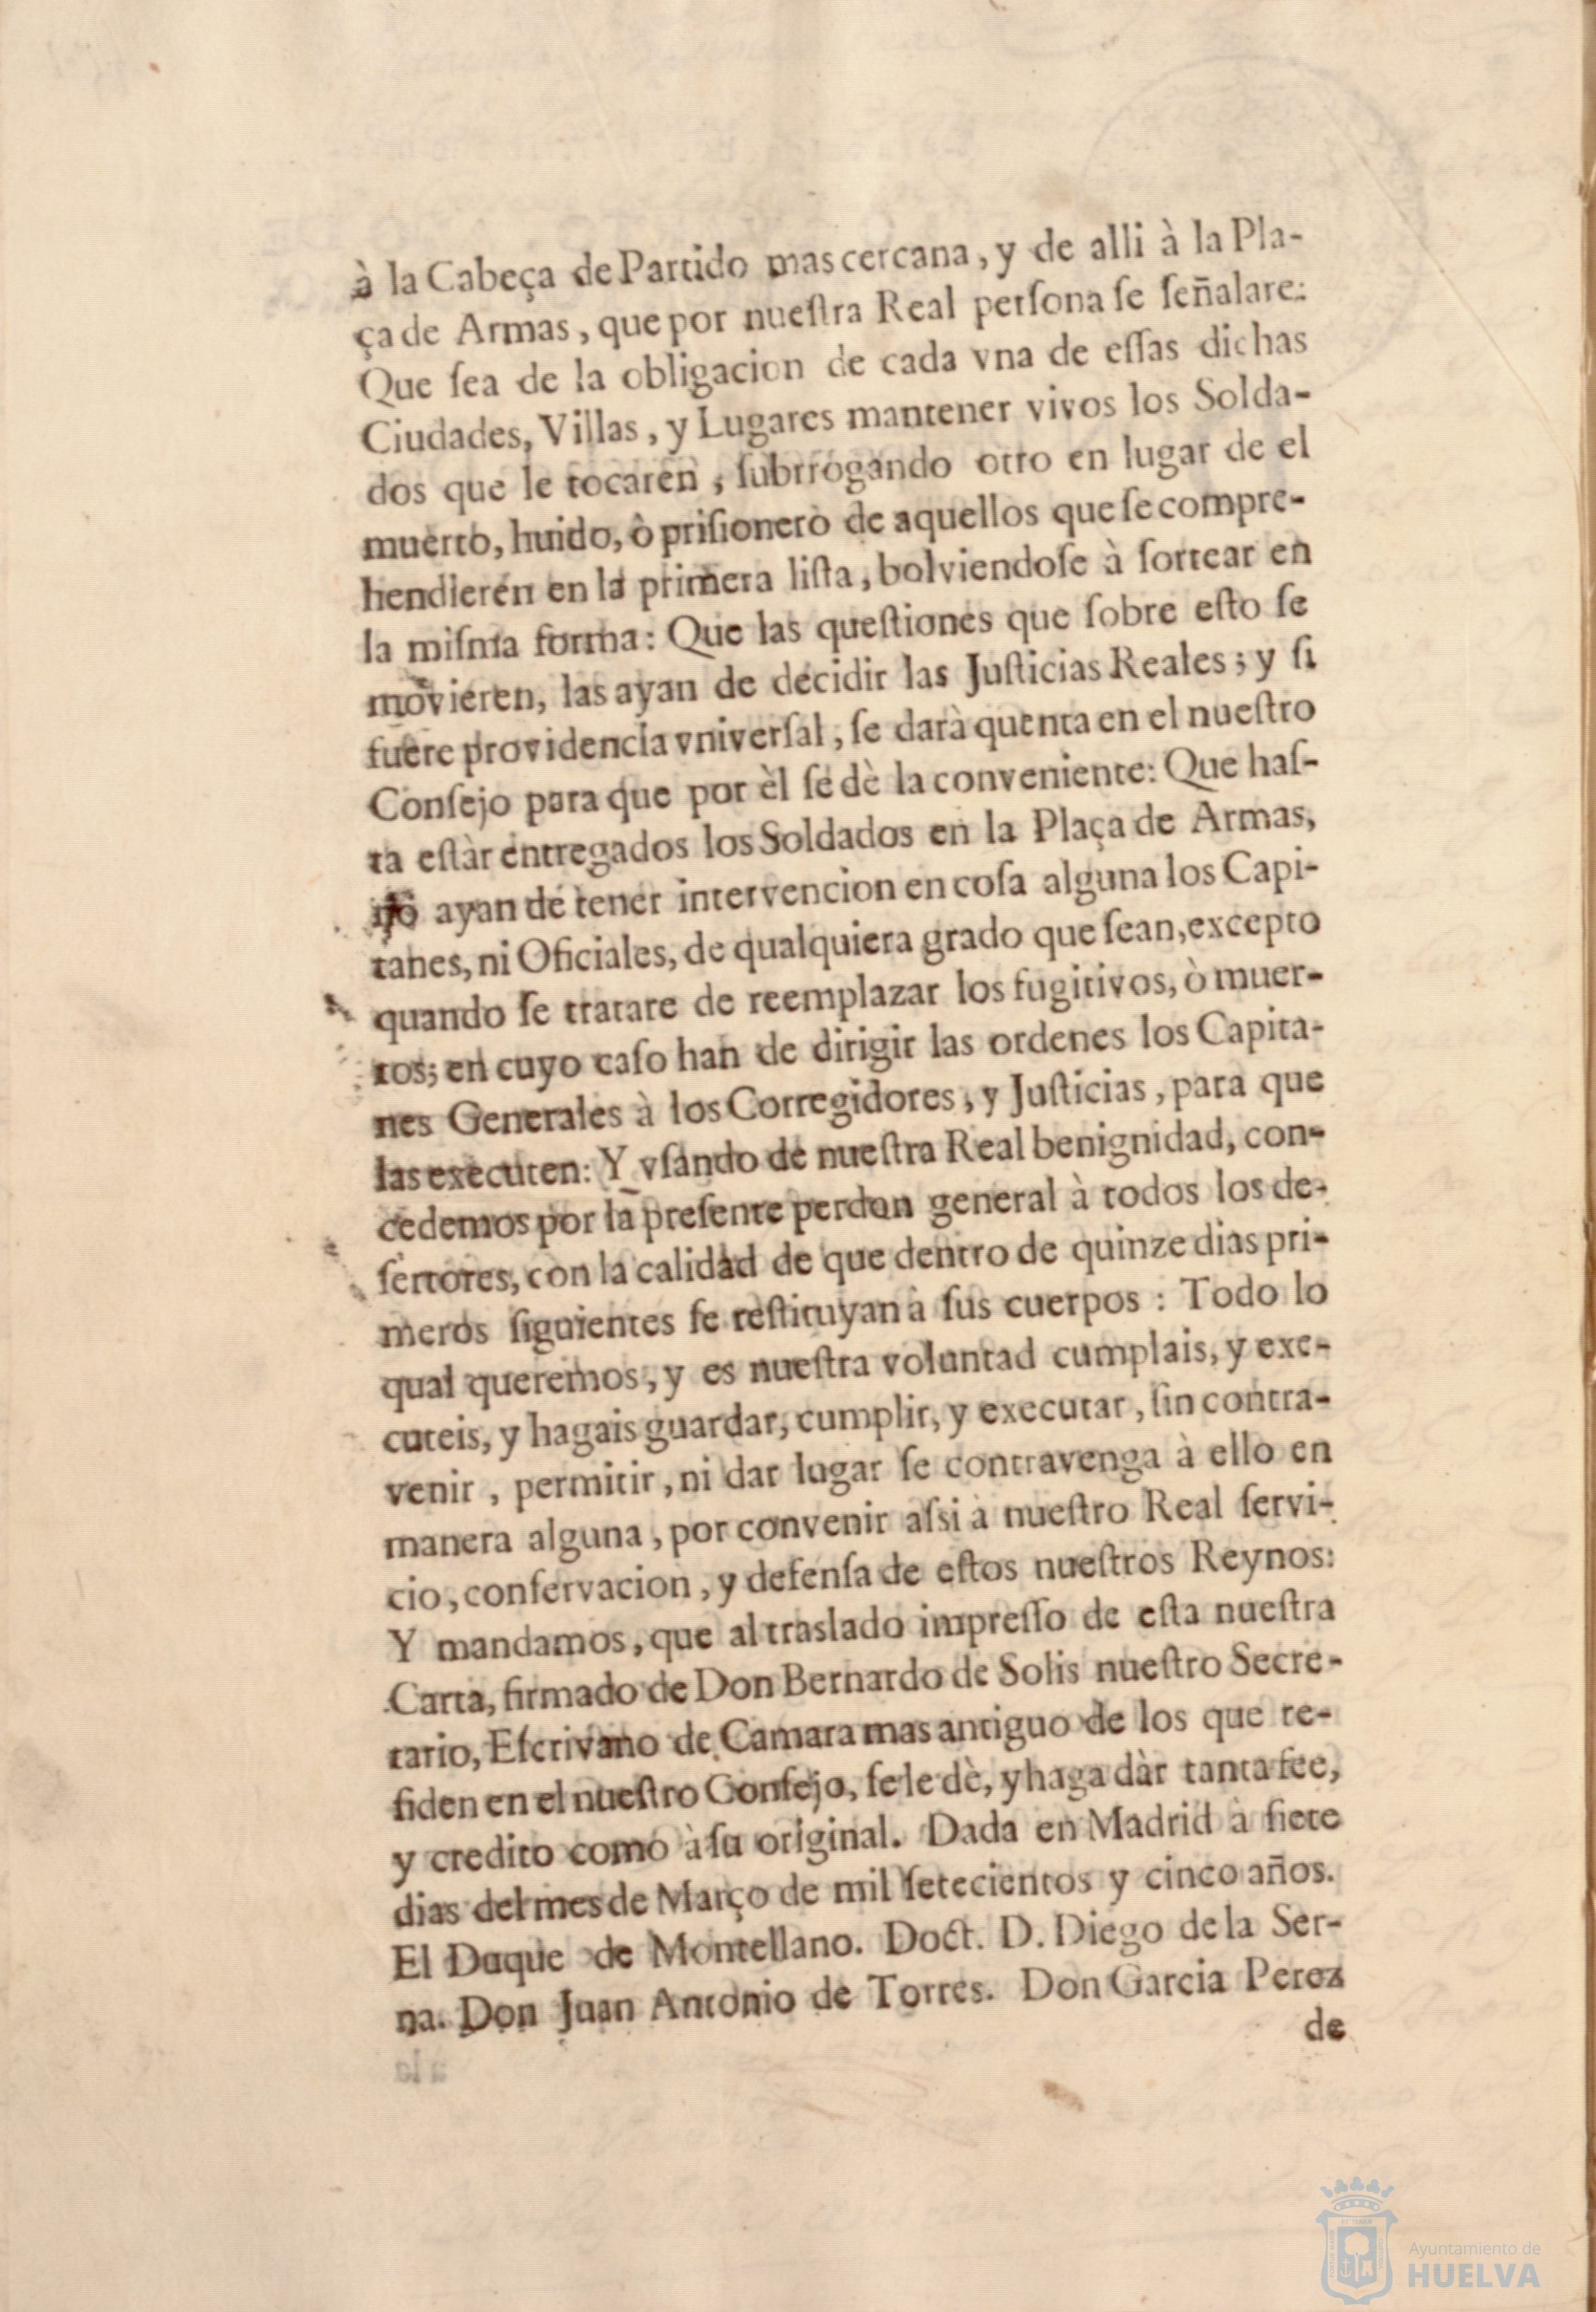 à la Cabeça de Partido mas cercana, y de alli à la Pla-
ça de Armas, que por nueſtra Real perſona ſe ſeñalare:
Que ſea de la obligacion de cada vna de eſſas dichas
Ciudades, Villas, y Lugares mantener vivos los Solda-
dos que le tocaren, ſubrrogando otro en lugar de el
muerto, huido, ò priſionero de aquellos que ſe compre-
hendieren en la primera liſta, bolviendoſe à ſortear en
la miſma forma: Que las queſtiones que ſobre eſto ſe
movieren, las ayan de decidir las Juſticias Reales; y ſi
fuere providencia vniverſal, ſe darà quenta en el nueſtro
Conſejo para que por èl ſe dè la conveniente: Que haſ-
ta eſtàr entregados los Soldados en la Plaça de Armas,
no ayan de tener intervencion en coſa alguna los Capi-
tanes, ni Oficiales, de qualquiera grado que ſean, excepto
quando ſe tratare de reemplazar los fugitivos, ò muer-
tos; en cuyo caſo han de dirigir las ordenes los Capita-
nes Generales à los Corregidores, y Juſticias, para que
las executen: Y vſando de nueſtra Real benignidad, con-
cedemos por la preſente perdon general à todos los de-
ſertores, con la calidad de que dentro de quinze dias pri-
meros ſiguientes ſe reſtituyan à ſus cuerpos : Todo lo
qual queremos, y es nueſtra voluntad cumplais, y exe-
cuteis, y hagais guardar, cumplir, y executar, ſin contra-
venir, permitir, ni dar lugar ſe contravenga à ello en
manera alguna, por convenir aſsi à nueſtro Real ſervi-
cio, conſervacion, y defenſa de eſtos nueſtros Reynos:
Y mandamos, que al traslado impreſſo de eſta nueſtra
Carta, firmado de Don Bernardo de Solis nueſtro Secre-
tario, Eſcrivano de Camara mas antiguo de los que re-
ſiden en el nueſtro Conſejo, ſe le dè, y haga dàr tanta fee,
y credito como à ſu original. Dada en Madrid à ſiete
dias del mes de Março de mil ſetecientos y cinco años.
El Duque de Montellano. Doct. D. Diego de la Ser-
na. Don Juan Antonio de Torres. Don Garcia Perez
de
Ayuntamiento de
HUELVA